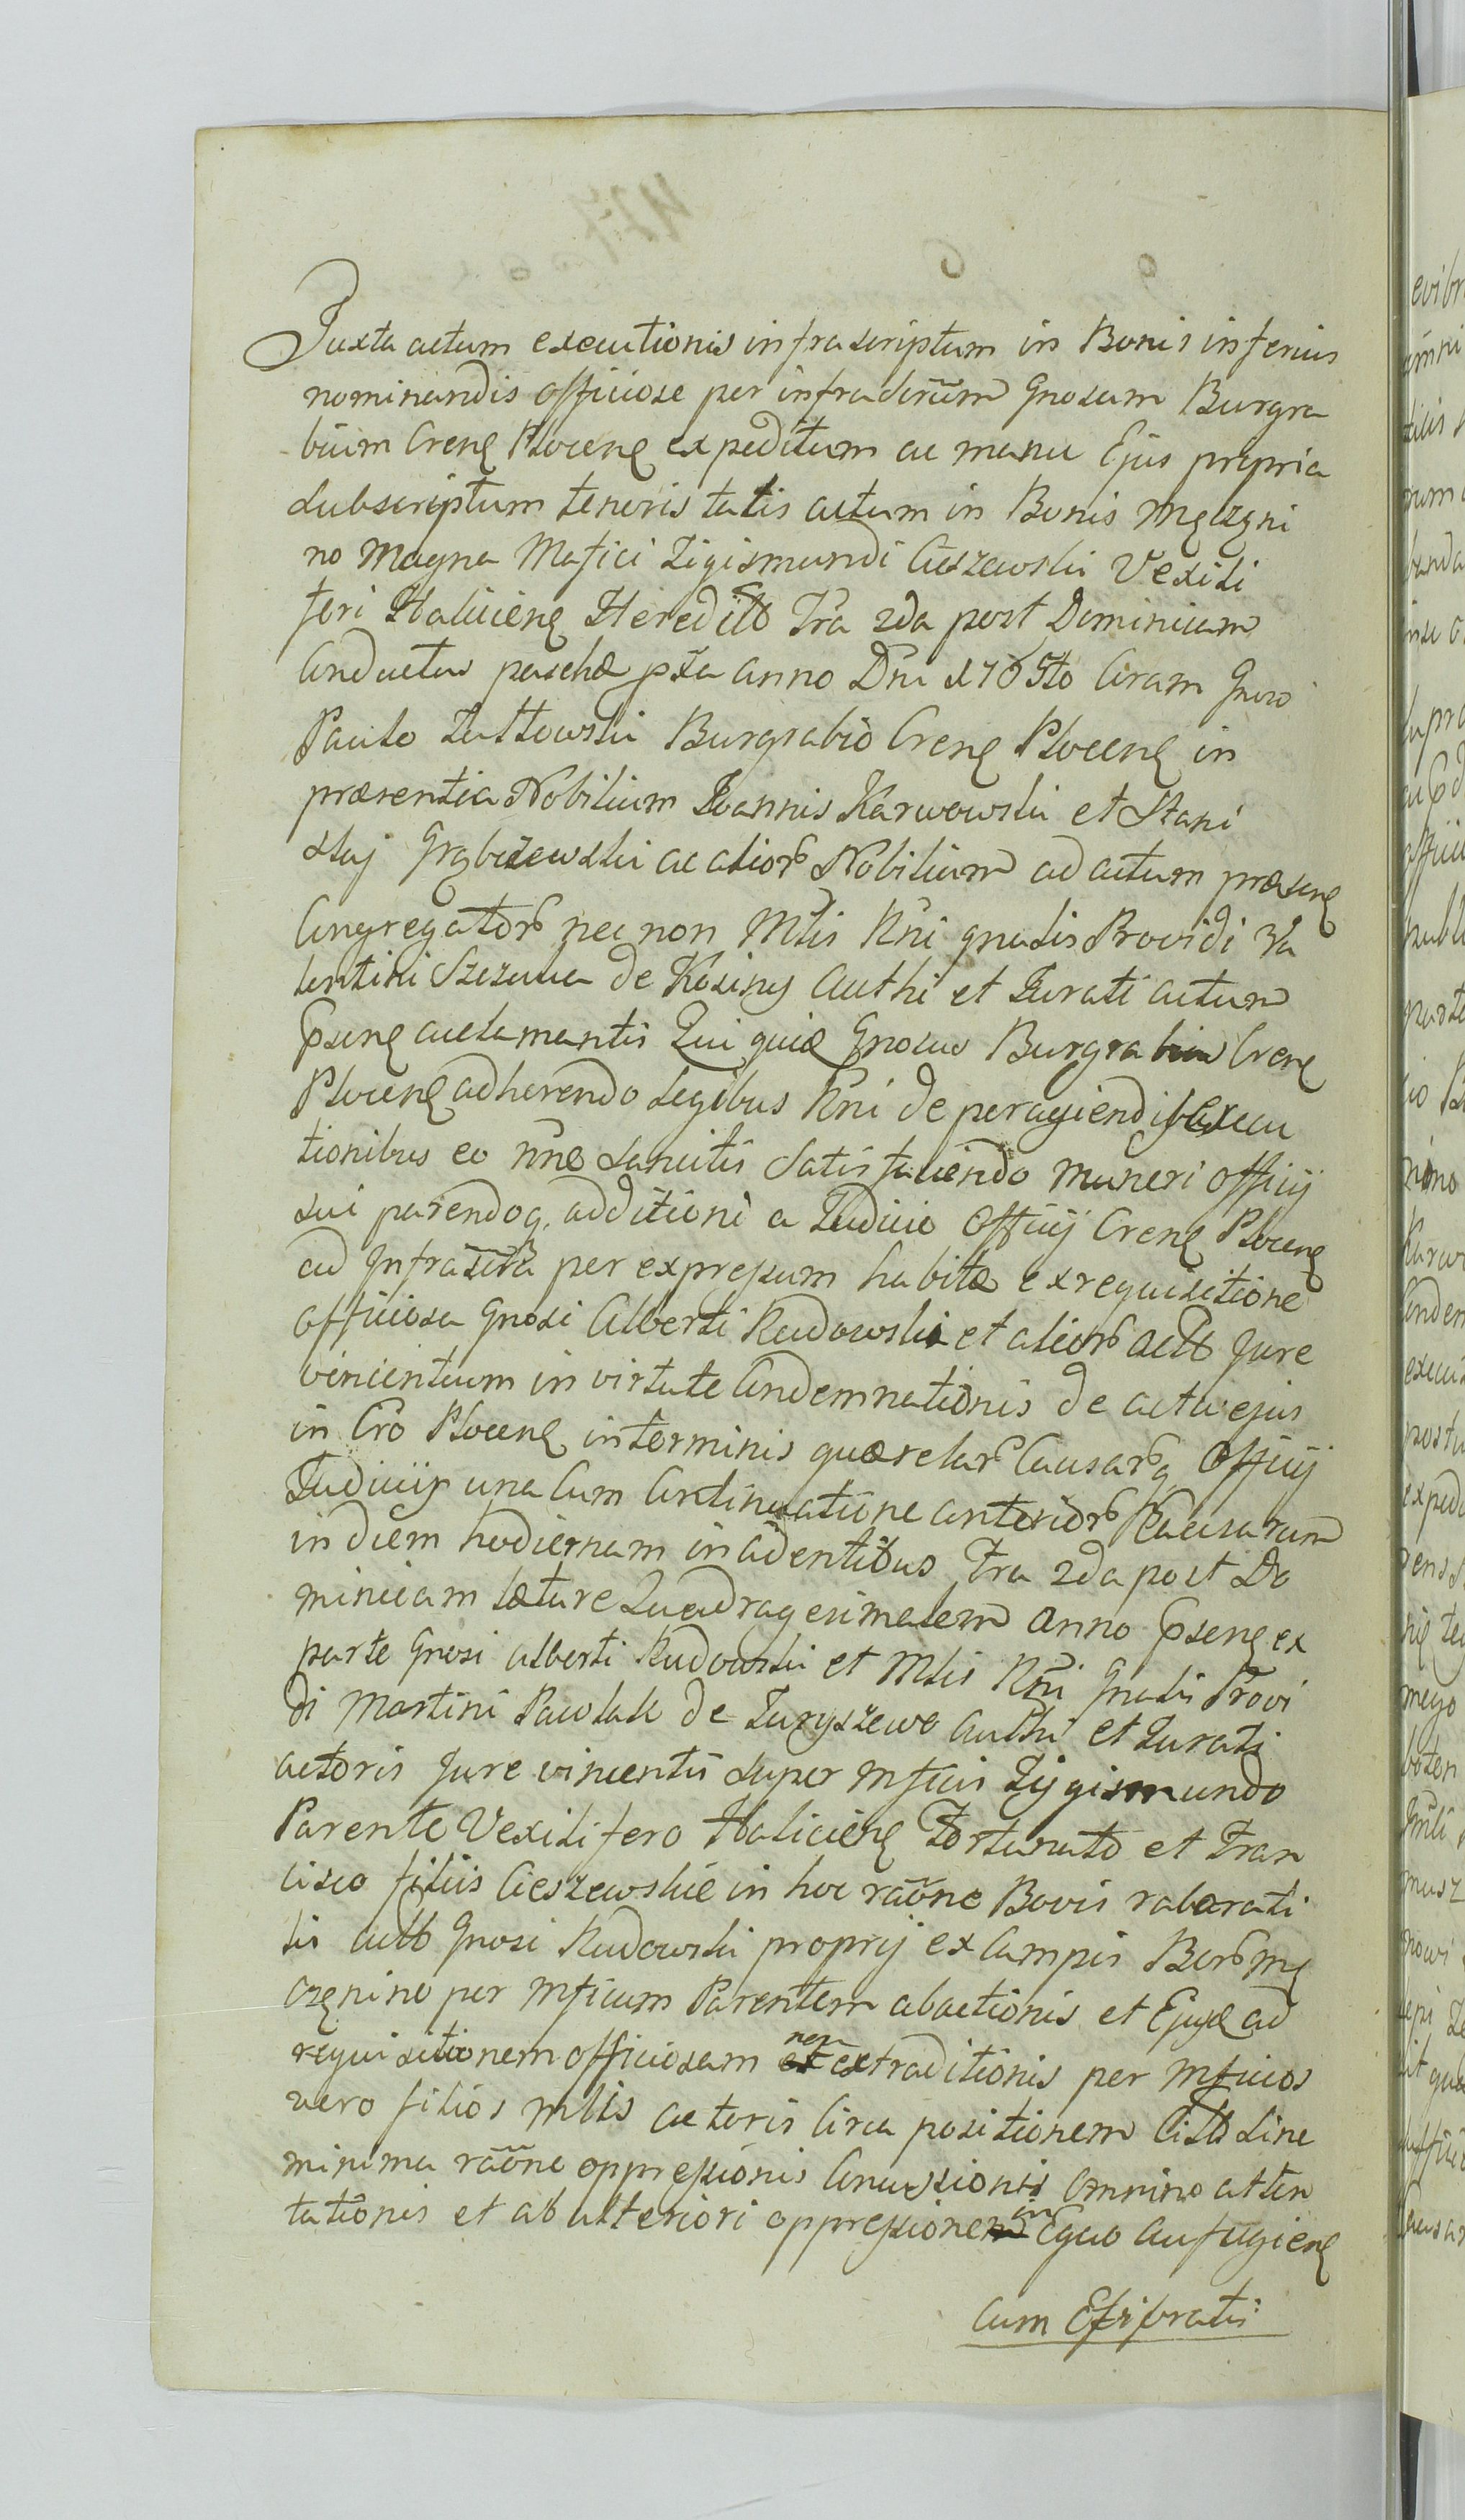 Juxta actum executionis infrascriptum in Bonis inferius
nominandis officiose per infradictum Gnosum Burgra
bium Crensę Plocensę expeditum ac manu Ejus propria
subscriptum tenoris talis actum in Bonis Męczęni
no Magna Mafici Zigismundi Cieszewski Vexili
feri Haliciensę Heredit Fra 2da post Dominicam
Conductus paschæ pxa Anno Dni 1765to Coram Gnoso
Paulo Zułtowski Burgrabio Crensę Plocensę in
præsentia Nobilium Joannis Karwowski et Stani
slaj Grąbczewski ac alior Nobilium ad actum præsensę
Congregator nec non Mlis Rni gnalis Providi Va
lentini Szczawa de Kosiny Authi et Jurati actum
Psensę acclamantis Qui quidę Gnosus Burgrabius Crensę
Plocensę adherendo legibus Rni de peragiendis execu
tionibus eo nne sancitis Satisfaciendo muneri officij
sui parendoq. additioni a Judicio Officij Crensę Plocensę
ad Infrascta per expressum habitæ ex requisitione
officiosa Gnosi Alberti Rudowski et alior actt Jure
vincentium in virtute Condemnationis de actu ejus
in Cro Plocensę in terminis quærelar Causarq Officij
Judicijs una Cum Continuatione anterior Causarum
in diem hodiernam incidentibus Fra 2da post Do
minicam lætare Quadragesimalem Anno Psensę ex
parte Gnosi Alberti Rudowski et Mlis Rni Gnalis Provi
di Martini Pawlak de Juryszewo Authi et Jurati
actoris Jure vincentis super Mficis Zygismundo
Parente Vexilifero Haliciensę Fortunato et Fran
cisco filiis Cieszewskie in hoc raone Bovis raborati
lis actt Gnosi Rudowski proprij ex Campis Bor Mę
czenino per Mficum Parentem abactionis et Ejusd ad
requisitionem officiosam non extraditionis per Mficos
vero filios Mlis actoris Circa positionem Citt sine
minima raone oppressionis Concussionis Omnino atten
tationis et ab ulteriori oppressione in Equo aufugiensę
Cum Efsibratis